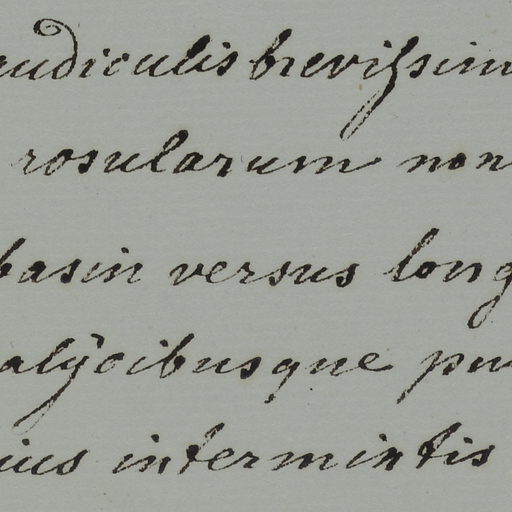 audiculis brevissim
rosularum non
basin versus long
alÿcibusque pu
ius intermixtis